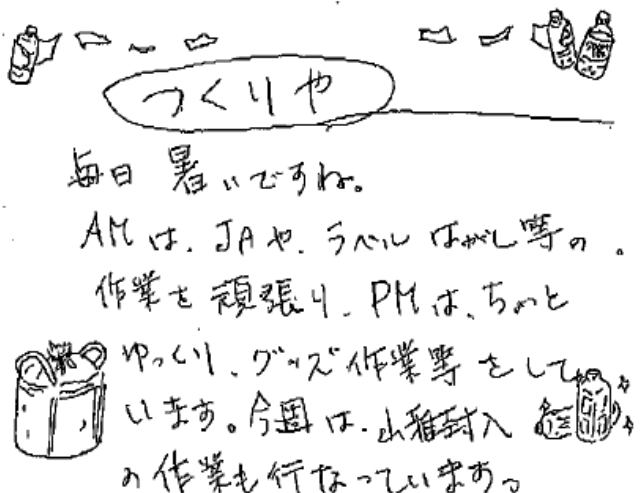 つくりや
毎日 暑いですね。
AMは、JAや、ラベルはがし等の
作業を頑張り、PMは、ちょっと
ゆっくり、グッズ作業等をして
います。今週は、山雅封入
の作業も行なっています。